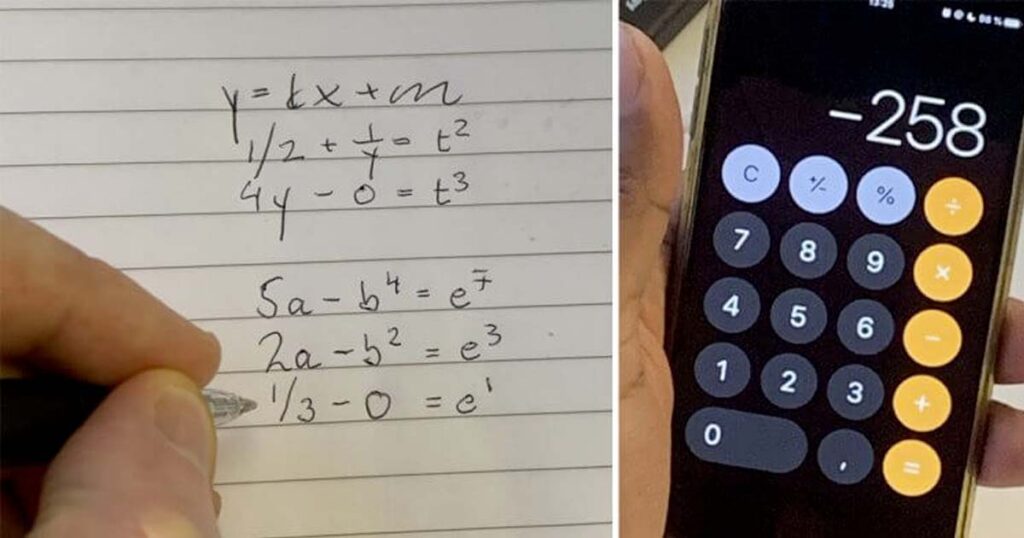 y = kx + m
1/2 + 1/y = t²
4y - 0 = t³
5a - b⁴ = e⁷
2a - b² = e³
1/3 - 0 = e¹
13:25
-258
C +/- % ÷
7 8 9 ×
4 5 6 −
1 2 3 +
0 , =